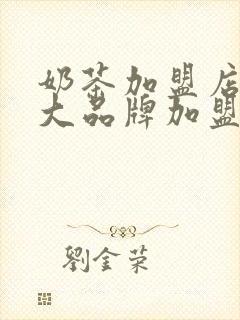 奶茶加盟店
大品牌加盟
劉金荣